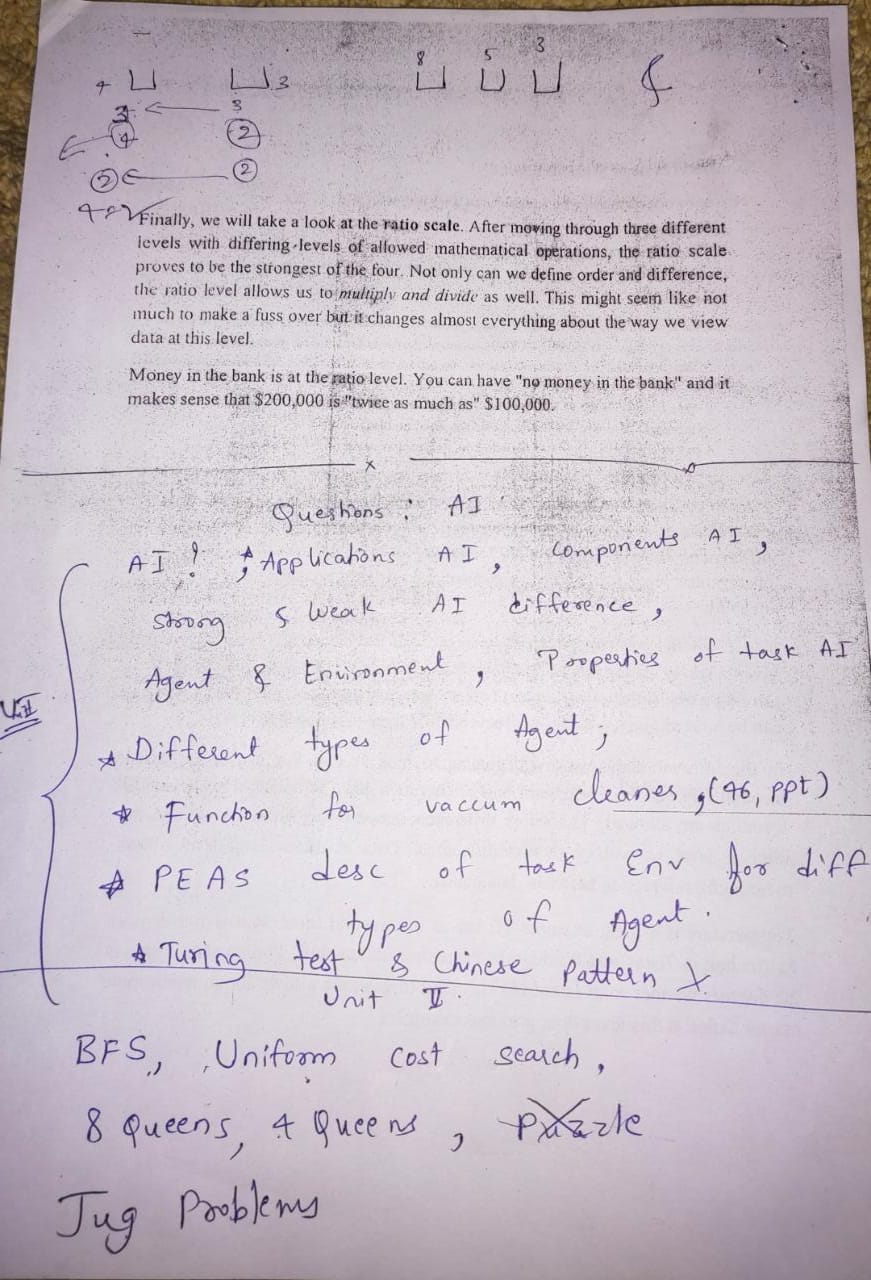 8 5 3
4 3
3 3
4 2
2 2
Finally, we will take a look at the ratio scale. After moving through three different
levels with differing levels of allowed mathematical operations, the ratio scale
proves to be the strongest of the four. Not only can we define order and difference,
the ratio level allows us to multiply and divide as well. This might seem like not
much to make a fuss over but it changes almost everything about the way we view
data at this level.
Money in the bank is at the ratio level. You can have "no money in the bank" and it
makes sense that $200,000 is "twice as much as" $100,000.
Questions : AI
AI ? ; Applications AI , Components AI ,
Strong & Weak AI difference ,
Agent & Environment , Properties of task AI
Different types of Agent ;
Function for vaccum cleaner , (46, ppt)
PEAS desc of task Env for diff
types of Agent .
Turing test & Chinese Pattern X
Unit II .
BFS , Uniform cost search ,
8 Queens , 4 Queens , Puzzle
Jug Problems